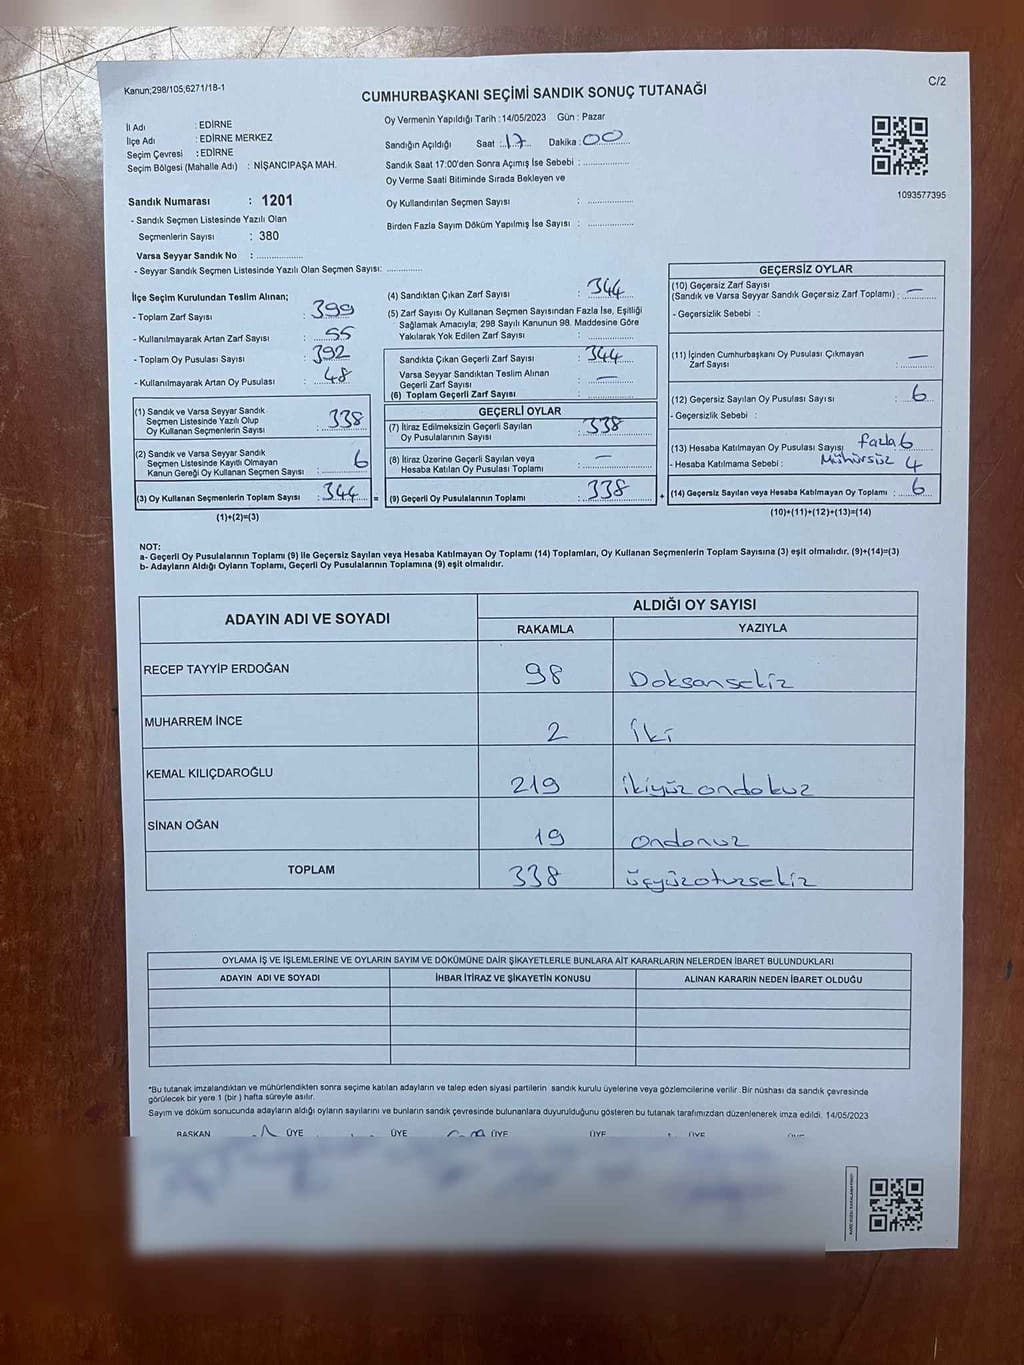 Kanun;298/105,6271/18-1
C/2
CUMHURBAŞKANI SEÇİMİ SANDIK SONUÇ TUTANAĞI
İl Adı : EDİRNE
İlçe Adı : EDİRNE MERKEZ
Seçim Çevresi : EDİRNE
Seçim Bölgesi (Mahalle Adı) : NİŞANCIPAŞA MAH.
Oy Vermenin Yapıldığı Tarih :14/05/2023 Gün : Pazar
Sandığın Açıldığı Saat :17 Dakika :00
Sandık Saat 17:00'den Sonra Açımış İse Sebebi :
Oy Verme Saati Bitiminde Sırada Bekleyen ve
Oy Kullandırılan Seçmen Sayısı :
Birden Fazla Sayım Döküm Yapılmış İse Sayısı :
1093577395
Sandık Numarası : 1201
- Sandık Seçmen Listesinde Yazılı Olan
Seçmenlerin Sayısı : 380
Varsa Seyyar Sandık No :
- Seyyar Sandık Seçmen Listesinde Yazılı Olan Seçmen Sayısı:
İlçe Seçim Kurulundan Teslim Alınan;
- Toplam Zarf Sayısı : 399
- Kullanılmayarak Artan Zarf Sayısı : 55
- Toplam Oy Pusulası Sayısı : 392
- Kullanılmayarak Artan Oy Pusulası : 48
(1) Sandık ve Varsa Seyyar Sandık
Seçmen Listesinde Yazılı Olup
Oy Kullanan Seçmenlerin Sayısı : 338
(2) Sandık ve Varsa Seyyar Sandık
Seçmen Listesinde Kayıtlı Olmayan
Kanun Gereği Oy Kullanan Seçmen Sayısı : 6
(3) Oy Kullanan Seçmenlerin Toplam Sayısı : 344 =
(1)+(2)=(3)
(4) Sandıktan Çıkan Zarf Sayısı : 344
(5) Zarf Sayısı Oy Kullanan Seçmen Sayısından Fazla İse, Eşitliği
Sağlamak Amacıyla; 298 Sayılı Kanunun 98. Maddesine Göre
Yakılarak Yok Edilen Zarf Sayısı :
Sandıkta Çıkan Geçerli Zarf Sayısı : 344
Varsa Seyyar Sandıktan Teslim Alınan
Geçerli Zarf Sayısı : —
(6) Toplam Geçerli Zarf Sayısı :
GEÇERLİ OYLAR
(7) İtiraz Edilmeksizin Geçerli Sayılan
Oy Pusulalarının Sayısı : 338
(8) İtiraz Üzerine Geçerli Sayılan veya
Hesaba Katılan Oy Pusulası Toplamı : —
(9) Geçerli Oy Pusulalarının Toplamı : 338 +
GEÇERSİZ OYLAR
(10) Geçersiz Zarf Sayısı
(Sandık ve Varsa Seyyar Sandık Geçersiz Zarf Toplamı) : —
- Geçersizlik Sebebi :
(11) İçinden Cumhurbaşkanı Oy Pusulası Çıkmayan
Zarf Sayısı : —
(12) Geçersiz Sayılan Oy Pusulası Sayısı : 6
- Geçersizlik Sebebi :
(13) Hesaba Katılmayan Oy Pusulası Sayısı fazla 6
- Hesaba Katılmama Sebebi : Mühürsüz 4
(14) Geçersiz Sayılan veya Hesaba Katılmayan Oy Toplamı : 6
(10)+(11)+(12)+(13)=(14)
NOT:
a- Geçerli Oy Pusulalarının Toplamı (9) ile Geçersiz Sayılan veya Hesaba Katılmayan Oy Toplamı (14) Toplamları, Oy Kullanan Seçmenlerin Toplam Sayısına (3) eşit olmalıdır. (9)+(14)=(3)
b- Adayların Aldığı Oyların Toplamı, Geçerli Oy Pusulalarının Toplamına (9) eşit olmalıdır.
ADAYIN ADI VE SOYADI ALDIĞI OY SAYISI
RAKAMLA YAZIYLA
RECEP TAYYİP ERDOĞAN 98 Doksansekiz
MUHARREM İNCE 2 iki
KEMAL KILIÇDAROĞLU 219 ikiyüz ondokuz
SİNAN OĞAN 19 ondonuz
TOPLAM 338 üçyüzotuzsekiz
OYLAMA İŞ VE İŞLEMLERİNE VE OYLARIN SAYIM VE DÖKÜMÜNE DAİR ŞİKAYETLERLE BUNLARA AİT KARARLARIN NELERDEN İBARET BULUNDUKLARI
ADAYIN ADI VE SOYADI İHBAR İTİRAZ VE ŞİKAYETİN KONUSU ALINAN KARARIN NEDEN İBARET OLDUĞU
"Bu tutanak imzalandıktan ve mühürlendikten sonra seçime katılan adayların ve talep eden siyasi partilerin sandık kurulu üyelerine veya gözlemcilerine verilir .Bir nüshası da sandık çevresinde
görülecek bir yere 1 (bir ) hafta süreyle asılır.
Sayım ve döküm sonucunda adayların aldığı oyların sayılarını ve bunların sandık çevresinde bulunanlara duyurulduğunu gösteren bu tutanak tarafımızdan düzenlenerek imza edildi. 14/05/2023
BAŞKAN ÜYE ÜYE ÜYE ÜYE ÜYE ÜYE